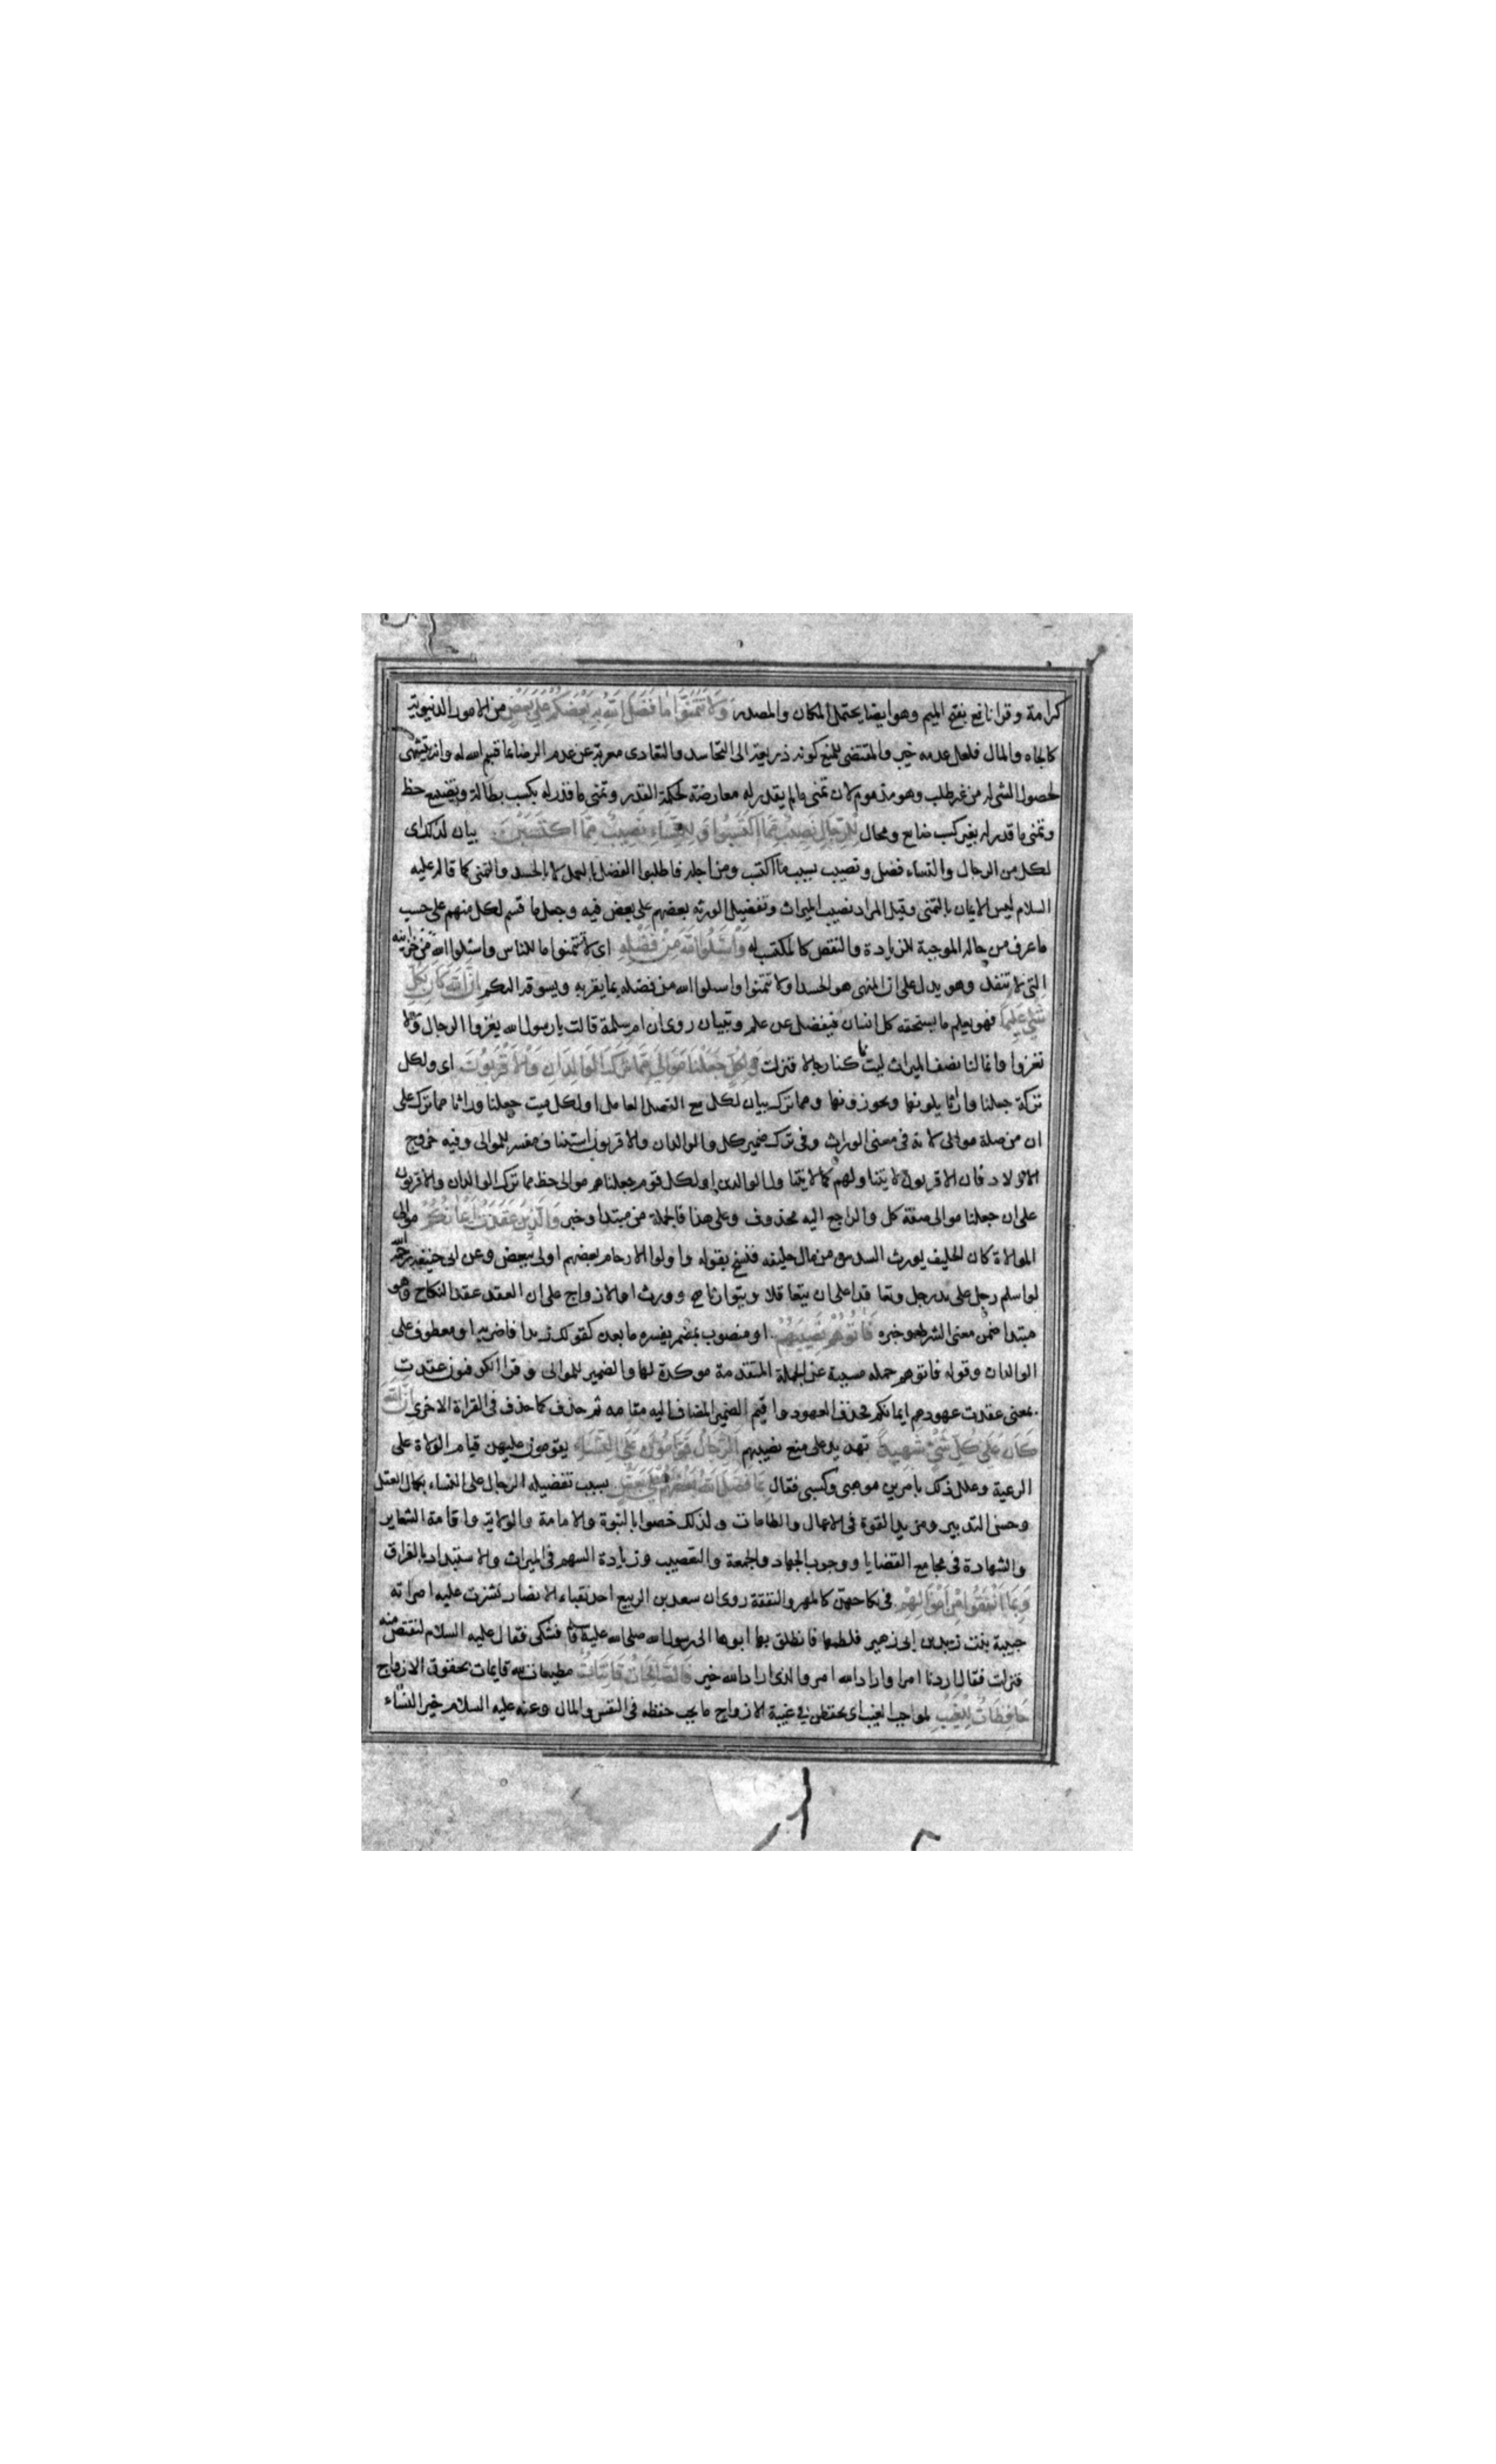 كرامة وقرا نافع بفتح الميم وهو ايضا يحتمل المكان والمصدر وَلَا تَتَمَنَّوْا مَا فَضَّلَ اللَّهُ بِهِ بَعْضَكُمْ عَلَى بَعْضٍ من الامور الدنيوية
كالجاه والمال فلعل عدمه خير والمقتضى للمنع كونه ذريعة الى التحاسد والتعادى معربة عن عدم الرضا بما قسم الله له وانه تشهى
لحصول الشىء له من غير طلب وهو مذموم لان تمنى ما لم يقدر له معارضة لحكمة القدر وتمنى ما قدر له بكسب بطالة وتضييع حظ
وتمنى ما قدر له بغير كسب ضايع ومحال لِلرِّجَالِ نَصِيبٌ مِمَّا اكْتَسَبُوا وَلِلنِّسَاءِ نَصِيبٌ مِمَّا اكْتَسَبْنَ بيان لذلك اى
لكل من الرجال والنساء فضل ونصيب بسبب ما اكتسب ومن اجله فاطلبوا الفضل بالعمل لا بالحسد والتمنى كما قال عليه
السلام ليس الايمان بالتمنى وقيل المراد نصيب الميراث وتفضيل الورثة بعضهم على بعض فيه وجعل ما قسم لكل منهم على حسب
ما عرف من حاله الموجبة للزيادة والنقص كالمكتسب له وَاسْئَلُوا اللَّهَ مِنْ فَضْلِهِ اى لا تتمنوا ما للناس واسئلوا الله من خزائنه
التى لا تنفد وهو يدل على ان المنهى هو الحسد او لا تتمنوا واسلوا الله من فضله بما يقربه ويسوقه اليكم إِنَّ اللَّهَ كَانَ بِكُلِّ
شَيْءٍ عَلِيمًا فهو يعلم ما يستحقه كل انسان فيفضل عن علم وتبيان روى ان ام سلمة قالت يا رسول الله يغزوا الرجال ولا
نغزوا وانما لنا نصف الميراث ليتنا كنا رجالا فنزلت وَلِكُلٍّ جَعَلْنَا مَوَالِيَ مِمَّا تَرَكَ الْوَالِدَانِ وَالْأَقْرَبُونَ اى ولكل
تركة جعلنا وراثا يلونها ويحوزونها ومما ترك بيان لكل مع الفصل بالعامل او لكل ميت جعلنا وراثا مما ترك على
ان من صلة موالى لانه فى معنى الوراث وفى ترك ضمير كل والوالدان والاقربون استيناف مفسر للموالى وفيه خروج
الاولاد فان الاقربون لا يتناولهم كما لا يتناول الوالدين او لكل قوم جعلناهم موالى حظ مما ترك الوالدان والاقربون
على ان جعلنا موالى صفة كل والراجع اليه محذوف وعلى هذا فالجملة من مبتدا وخبر وَالَّذِينَ عَقَدَتْ أَيْمَانُكُمْ موالى
الموالاة كان الحليف يورث السدس من مال حليفه فنسخ بقوله واولوا الارحام بعضهم اولى ببعض وعن ابى حنيفة رحمه الله
لو اسلم رجل على يد رجل وتعاقدا على ان يتعاقلا ويتوارثا صح وورث او الازواج على ان العقد عقد النكاح وهو
مبتدا ضمن معنى الشرط وخبره فَآتُوهُمْ نَصِيبَهُمْ او منصوب بمضمر يفسره ما بعده كقولك زيدا فاضربه او معطوف على
الوالدان وقوله فاتوهم جمله مسببة عن الجملة المتقدمة موكدة لها والضمير للموالى وقرا الكوفيون عقدت
بمعنى عقدت عهودهم ايمانكم فحذف العهود واقيم الضمير المضاف اليه مقامه ثم حذف كما حذف فى القراة الاخرى إِنَّ اللَّهَ
كَانَ عَلَى كُلِّ شَيْءٍ شَهِيدًا تهديد على منع نصيبهم الرِّجَالُ قَوَّامُونَ عَلَى النِّسَاءِ يقومون عليهن قيام الولاة على
الرعية وعلل ذلك بامرين موهبى وكسبى فقال بِمَا فَضَّلَ اللَّهُ بَعْضَهُمْ عَلَى بَعْضٍ بسبب تفضيله الرجال على النساء بكمال العقل
وحسن التدبير ومزيد القوة فى الاعمال والطاعات ولذلك خصوا بالنبوة والامامة والولاية واقامة الشعاير
والشهادة فى مجامع القضايا ووجوب الجهاد والجمعة والتعصيب وزيادة السهم فى الميراث والاستبداد بالفراق
وَبِمَا أَنْفَقُوا مِنْ أَمْوَالِهِمْ فى نكاحهن كالمهر والنفقة روى ان سعد بن الربيع احد نقباء الانصار نشزت عليه امراته
حبيبة بنت زيد بن ابى زهير فلطمها فانطلق بها ابوها الى رسول الله صلى الله عليه وسلم فشكى فقال عليه السلام لتقتص منه
فنزلت فقال اردنا امرا واراد الله امرا والذى اراد الله خير فَالصَّالِحَاتُ قَانِتَاتٌ مطيعات لله قايمات بحقوق الازواج
حَافِظَاتٌ لِلْغَيْبِ لمواجب الغيب اى يحفظن فى غيبة الازواج ما يجب حفظه فى النفس والمال وعنه عليه السلام خير النساء